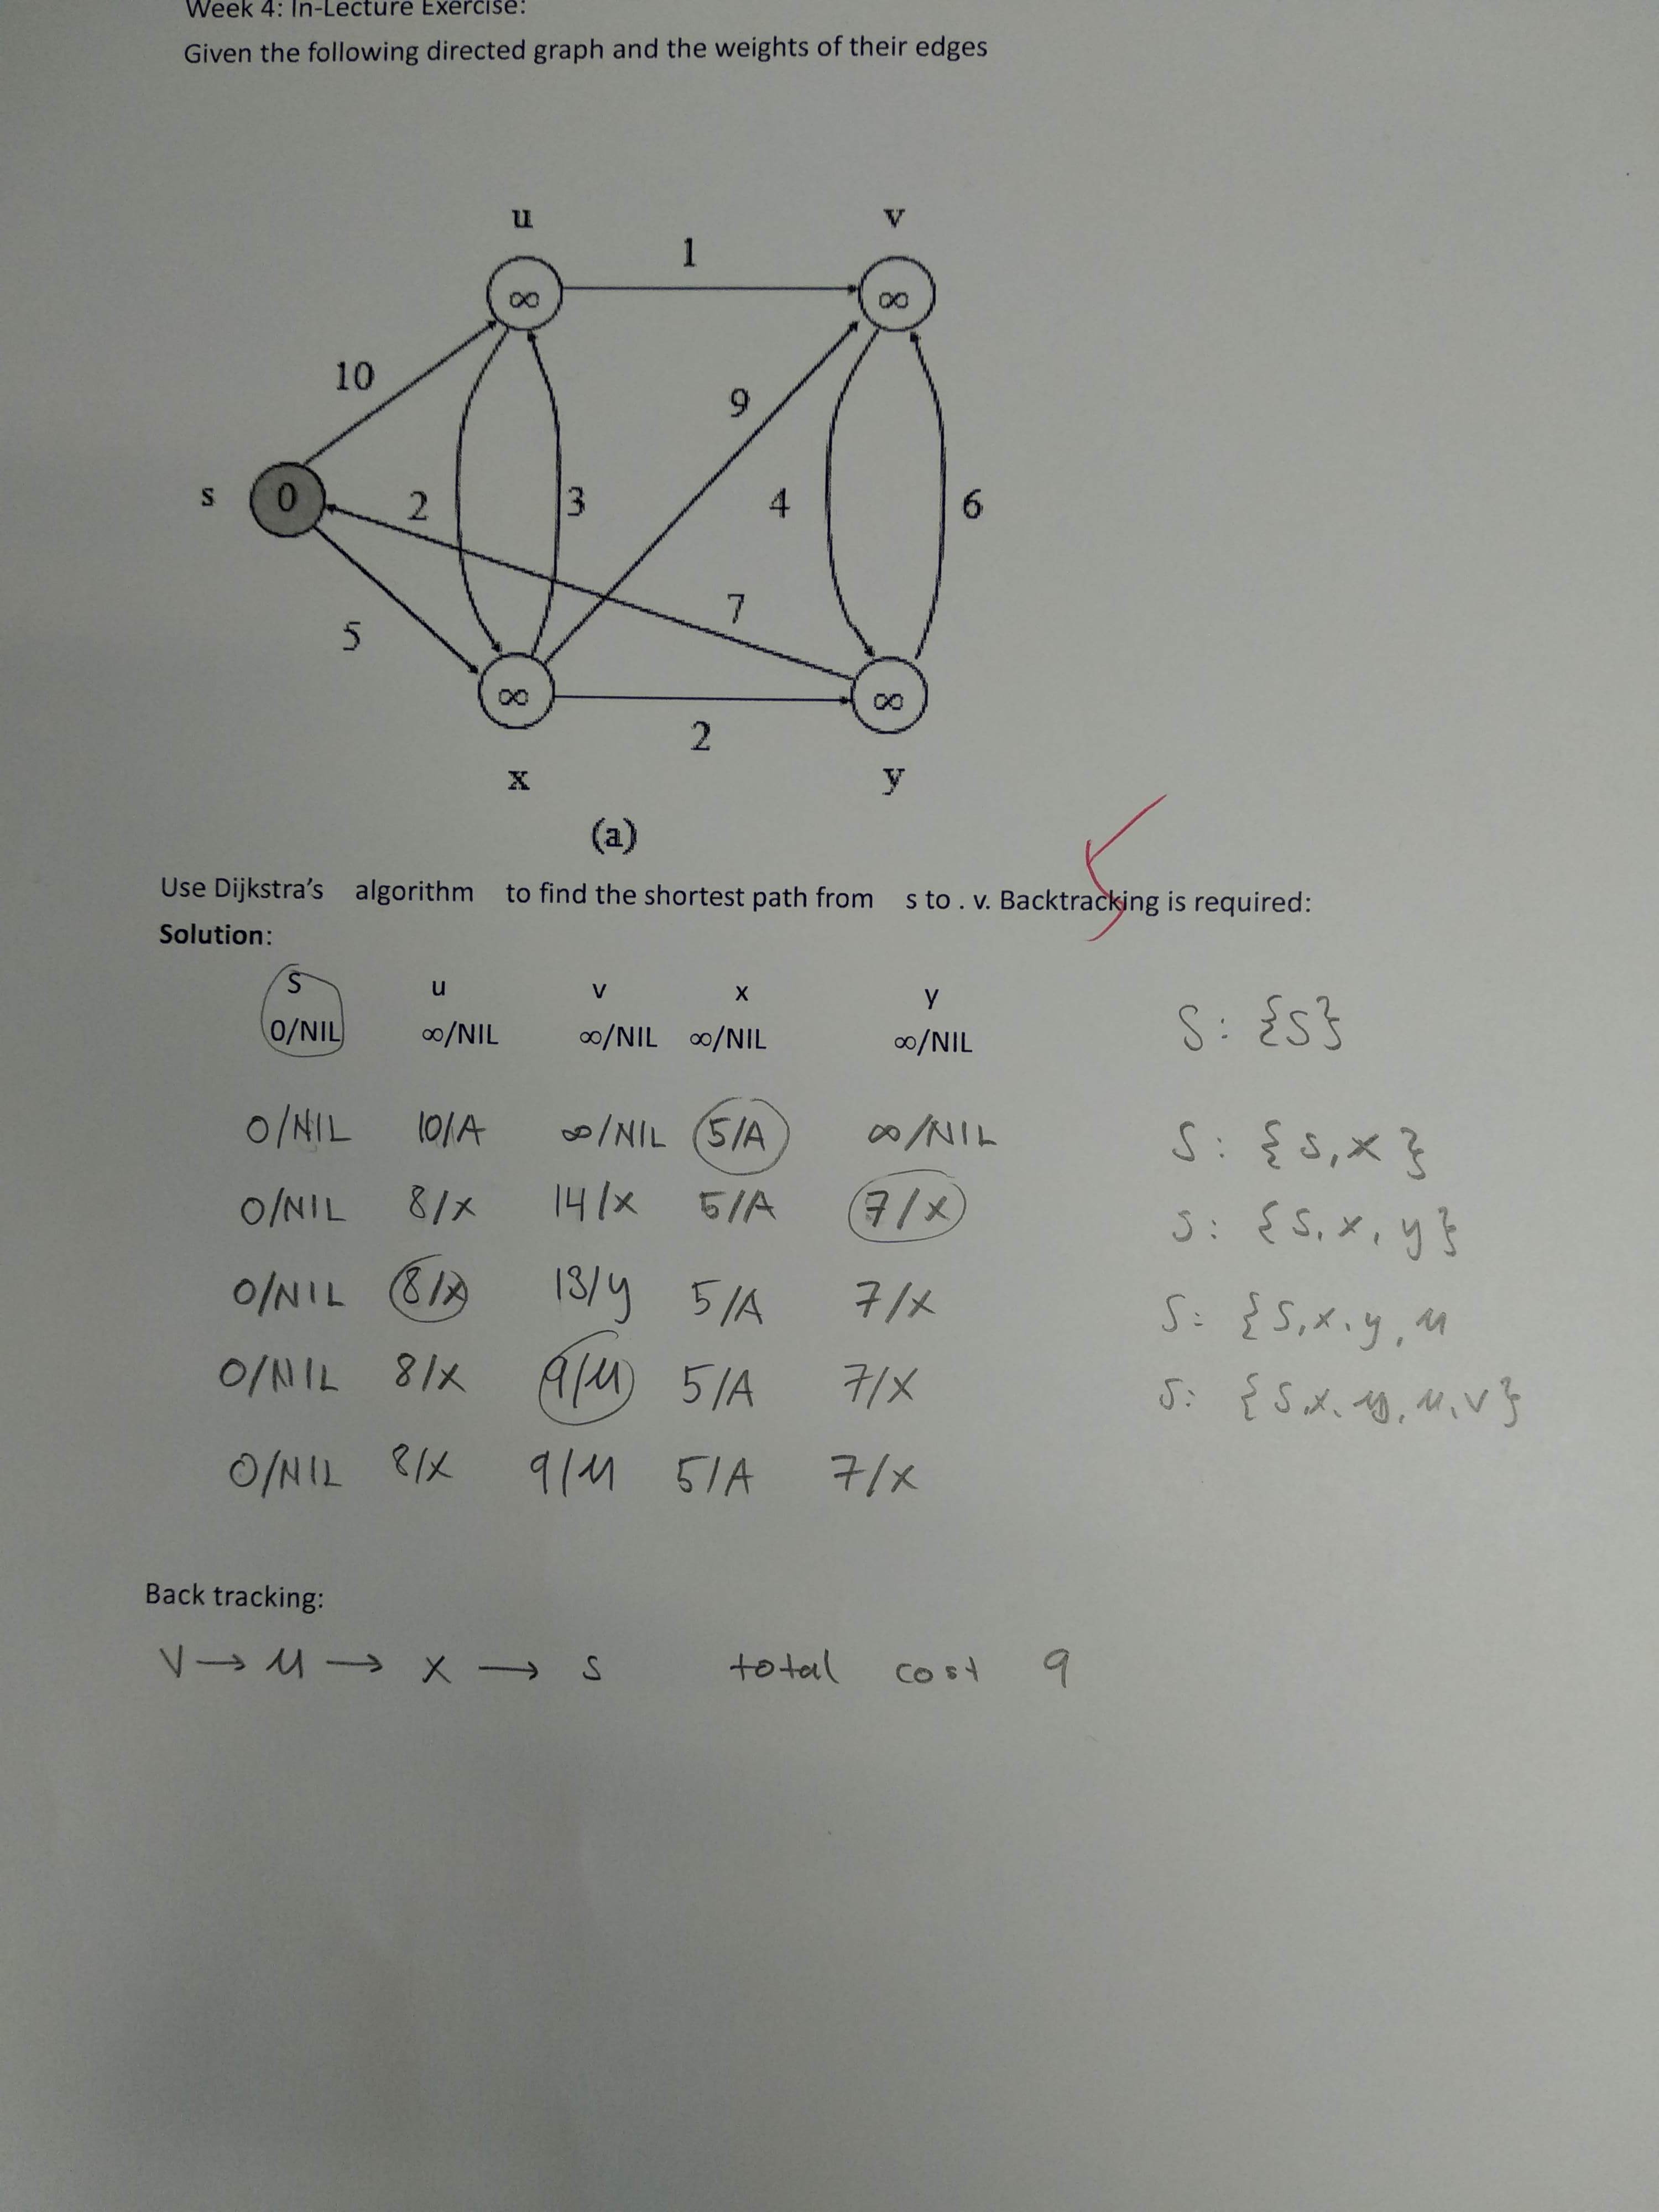 Week 4: In-Lecture Exercise:
Given the following directed graph and the weights of their edges
u v
1
∞ ∞
10
9
s 0 2 3 4 6
7
5
∞ ∞
2
x y
(a)
Use Dijkstra's algorithm to find the shortest path from s to . v. Backtracking is required:
Solution:
S u v x y
0/NIL ∞/NIL ∞/NIL ∞/NIL ∞/NIL S: {S}
0/NIL 10/A ∞/NIL 5/A ∞/NIL S: {s,x}
0/NIL 8/x 14/x 5/A 7/x S: {S,x,y}
0/NIL 8/x 13/y 5/A 7/x S: {S,x,y,u
0/NIL 8/x 9/u 5/A 7/x S: {S,x,y,u,v}
0/NIL 8/x 9/u 5/A 7/x
Back tracking:
V → u → x → s total cost 9